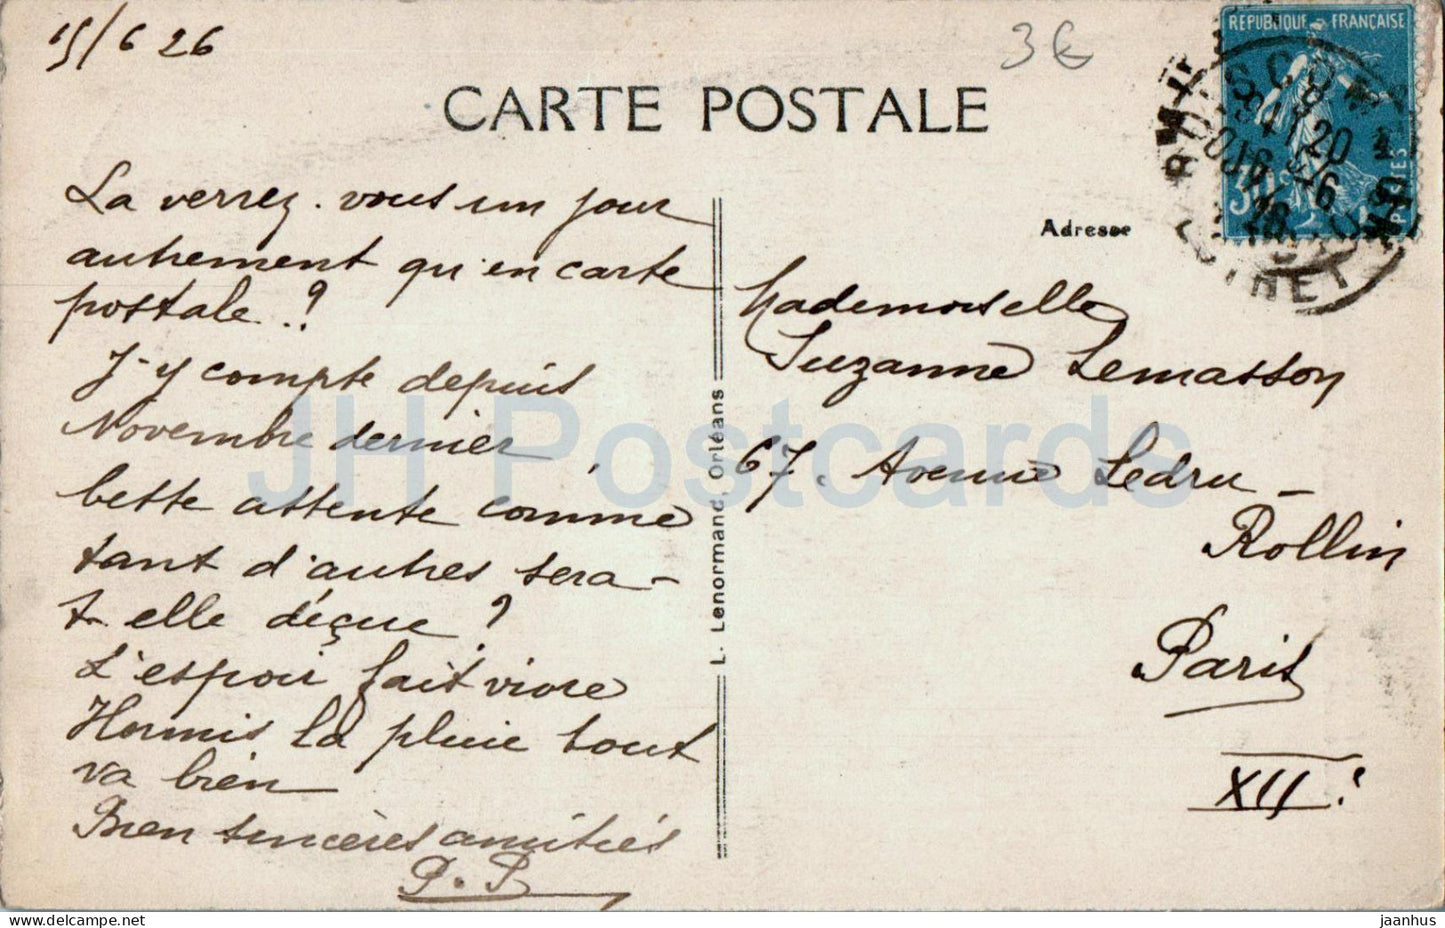 15/6 26
3€
CARTE POSTALE
REPUBLIQUE FRANÇAISE
La verrez-vous un jour
autrement qu'en carte
postale ?
J'y compte depuis
Novembre dernier,
Cette attente comme
tant d'autres sera-
t-elle déçue ?
L'espoir fait vivre
Hormis la pluie tout
va bien
Bien sincères amitiés
P. P.
L. Lenormand, Orléans
Adresse
Mademoiselle
Suzanne Lemasson
67. Avenue Ledru-
Rollin
Paris
XII e
LOIRET
JH Postcards
www.delcampe.net
jaanhus